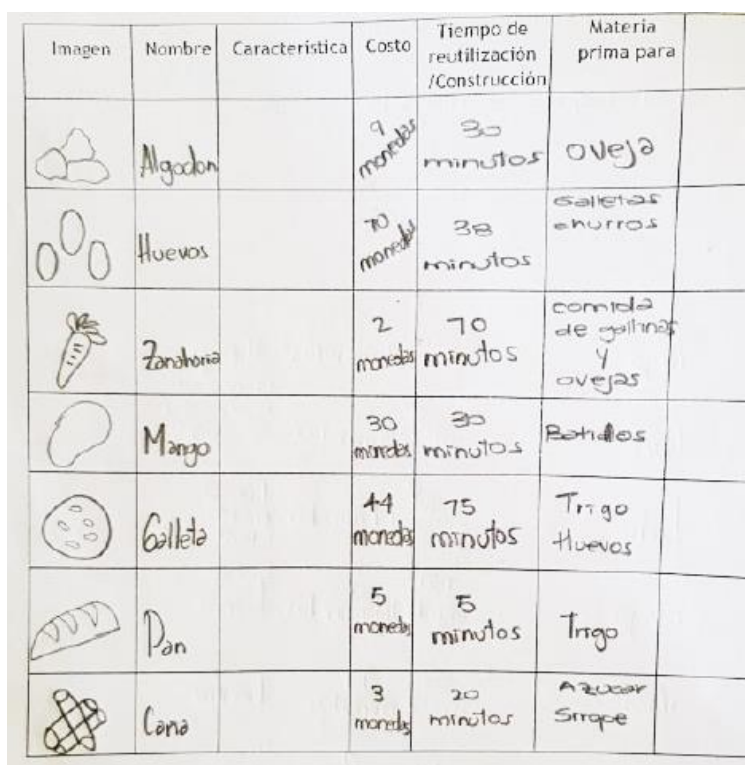 Imagen Nombre Caracteristica Costo Tiempo de reutilización /Construcción Materia prima para
Algodon 9 monedas 30 minutos oveja
Huevos 10 monedas 38 minutos Galletas churros
Zanahoria 2 monedas 70 minutos comida de gallinas y ovejas
Mango 30 monedas 30 minutos Batidos
Galleta 44 monedas 75 minutos Trigo Huevos
Pan 5 monedas 5 minutos Trigo
Cana 3 monedas 20 minutos Azucar Sirope